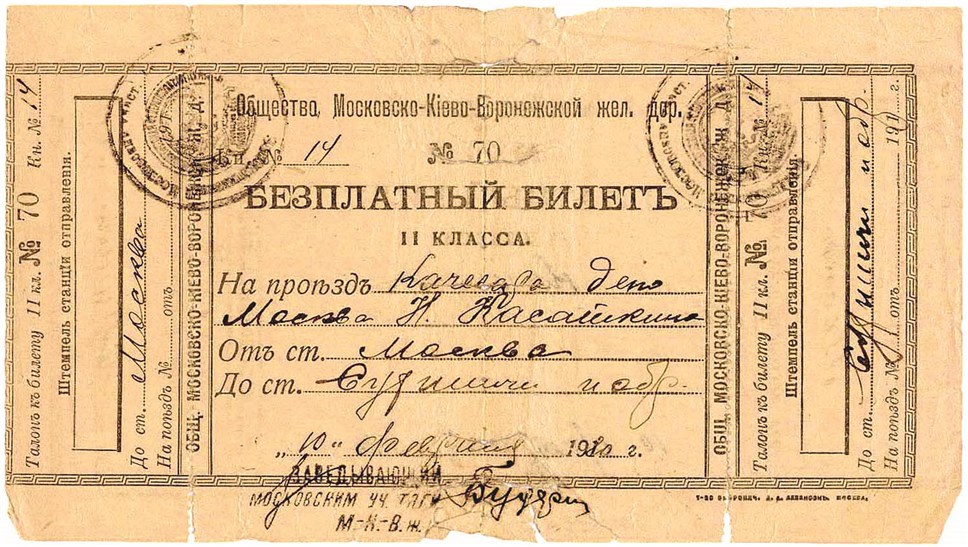 Общество, Московско-Кіево-Воронежской жел. дор.
Кн. № 14 № 70
БЕЗПЛАТНЫЙ БИЛЕТЪ
II КЛАССА.
На проѣздъ Качегара депо
Москва Н. Касаткина
Отъ ст. Москва
До ст. Сухиничи и обр.
„10" февраля 1920 г.
ЗАВЕДЫВАЮЩИЙ
МОСКОВСКИМ УЧ. ТЯГИ
М-К-В.ж.
Талонъ къ билету II кл. № 70 Кн. № 14
Штемпель станціи отправленія.
До ст. Москва
На поѣздъ № отъ
ОБЩ. МОСКОВСКО-КІЕВО-ВОРОНЕЖСК. Ж. Д.
ОБЩ. МОСКОВСКО-КІЕВО-ВОРОНЕЖСК. Ж. Д.
Талонъ къ билету II кл. № 70 Кн. № 14
Штемпель станціи отправленія.
До ст. Сухиничи и обр.
На поѣздъ № отъ 191